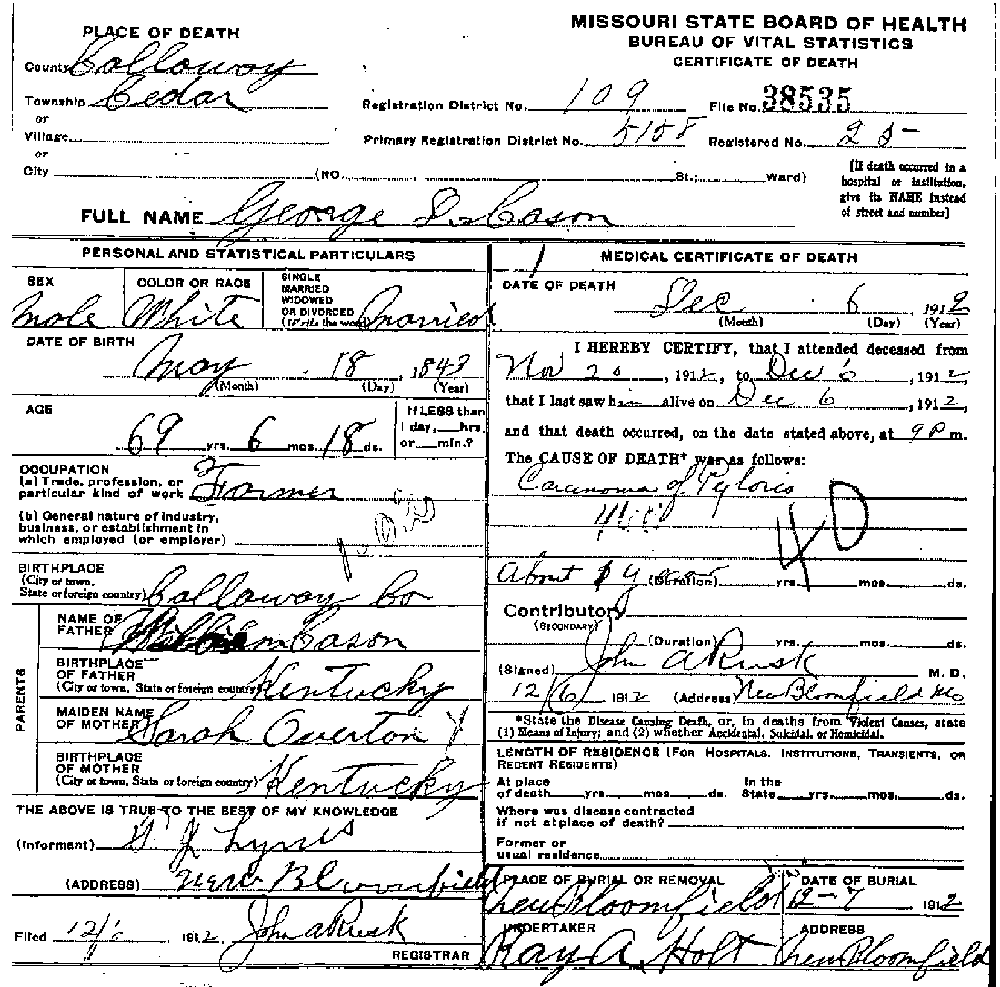 MISSOURI STATE BOARD OF HEALTH
BUREAU OF VITAL STATISTICS
CERTIFICATE OF DEATH
PLACE OF DEATH
County Calloway
Township Cedar
or
Village
or
City (NO. St.; Ward)
Registration District No. 109 File No. 38535
Primary Registration District No. 5158 Registered No. 25
[If death occurred in a
hospital or institution,
give its NAME instead
of street and number]
FULL NAME George S. Cason
PERSONAL AND STATISTICAL PARTICULARS
SEX Male
COLOR OR RACE White
SINGLE
MARRIED
WIDOWED
OR DIVORCED
(Write the word) Married
DATE OF BIRTH
May 18, 1843
(Month) (Day) (Year)
AGE
69 yrs. 6 mos. 18 ds.
If LESS than
1 day, hrs.
or min.?
OCCUPATION
(a) Trade, profession, or
particular kind of work Farmer
(b) General nature of industry,
business, or establishment in
which employed (or employer)
BIRTHPLACE
(City or town,
State or foreign country) Calloway Co
PARENTS
NAME OF
FATHER William Cason
BIRTHPLACE
OF FATHER
(City or town, State or foreign country) Kentucky
MAIDEN NAME
OF MOTHER Sarah Overton
BIRTHPLACE
OF MOTHER
(City or town, State or foreign country) Kentucky
THE ABOVE IS TRUE TO THE BEST OF MY KNOWLEDGE
(Informant) Lynes
(ADDRESS) New Bloomfield
Filed 12/6 1912 John A Rusk
REGISTRAR
MEDICAL CERTIFICATE OF DEATH
DATE OF DEATH
Dec 6 1912
(Month) (Day) (Year)
I HEREBY CERTIFY, that I attended deceased from
Nov 20, 1912, to Dec 6, 1912
that I last saw him alive on Dec 6, 1912,
and that death occurred, on the date stated above, at 9 P m.
The CAUSE OF DEATH* was as follows:
Carcinoma of Pyloris
40
About 1 year (Duration) yrs. mos. ds.
Contributory
(SECONDARY)
(Duration) yrs. mos. ds.
(Signed) John A Rusk M. D.
12/6/ 1912 (Address) New Bloomfield Mo
*State the Disease Causing Death, or, in deaths from Violent Causes, state
(1) Means of Injury; and (2) whether Accidental, Suicidal, or Homicidal.
LENGTH OF RESIDENCE (FOR HOSPITALS, INSTITUTIONS, TRANSIENTS, OR
RECENT RESIDENTS)
At place In the
of death yrs. mos. ds. State yrs. mos. ds.
Where was disease contracted
if not at place of death?
Former or
usual residence
PLACE OF BURIAL OR REMOVAL
New Bloomfield
DATE OF BURIAL
12-7 1912
UNDERTAKER
Ray A. Holt
ADDRESS
New Bloomfield